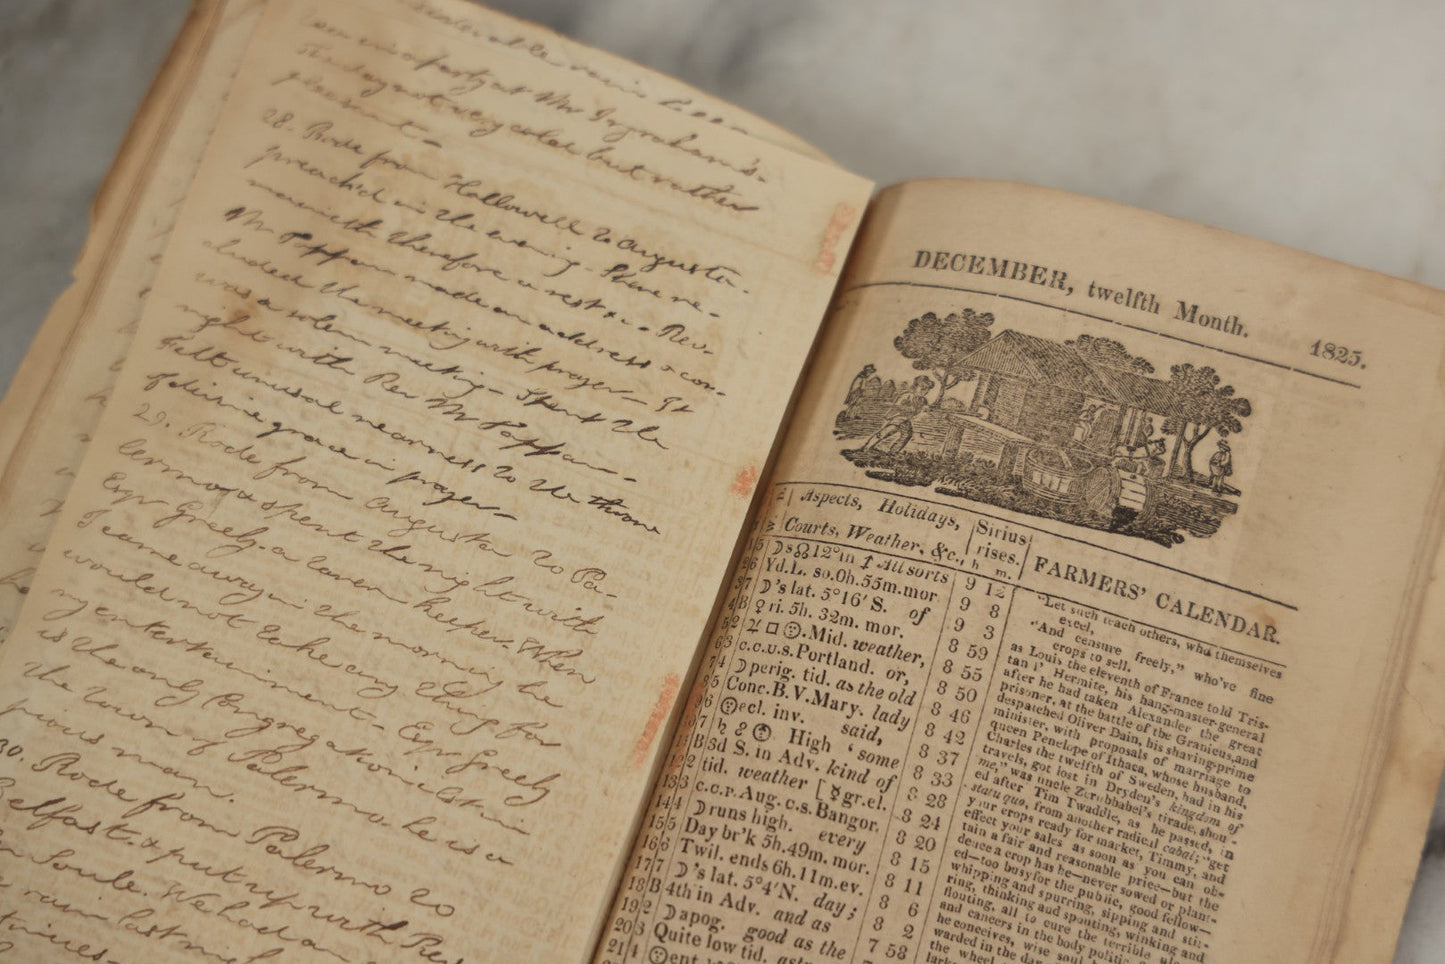 considerable rain been
one in a party at Mr Ingraham's.
The day not very cold but rather
pleasant -
28. Rode from Hallowell to Augusta.
preach'd in the evening - Stove re-
therefore a rest
Mr Poppan made an address & con-
cluded the meeting with prayer - It
was a solem meeting - Spent the
night with Rev Mr Poppan -
Felt unusual nearness to the throne
of divine grace in prayer -
29. Rode from Augusta to Pa-
lermo & spent the night with
Esqr Greely. a tavern keeper. When
I came away in the morning he
would not take any thing for
my entertainment - Esqr Greely
is the only Congregationalist in
the town of Palermo. he is a
pious man.
30. Rode from Palermo to
Belfast. & put up with Rev
Soule. We had a
rain last night
DECEMBER, twelfth Month. 1825.
Aspects, Holidays, Sirius
Courts, Weather, &c., rises. FARMERS' CALENDAR.
h m.
1 5 ☽s☊12°in ♐ All sorts 9 12
2 6 Yd.L. so.0h.55m.mor 9 8
3 7 ☽'s lat. 5°16' S. of 9 3
4 B ♀ ri. 5h. 32m. mor. 8 59
5 2 ♃ □ ☉.Mid. weather, 8 55
6 3 c.c.u.s.Portland. or, 8 50
7 4 ☽ perig. tid. as the old 8 46
8 5 Conc.B.V.Mary. lady 8 42
9 6 ☉ecl. inv. said, 8 37
10 7 ♄ ☍ ☉ High 'some 8 33
11 B 3d S. in Adv. kind of 8 28
12 2 tid. weather [☿gr.el. 8 24
13 3 c.c.p.Aug. c.s.Bangor. 8 20
14 4 ☽runs high. every 8 15
15 5 Day br'k 5h.49m. mor. 8 11
16 6 Twil. ends 6h.11m.ev. 8 6
17 7 ☽'s lat. 5°4'N. day; 8 2
18 B 4th in Adv. and as 7 58
19 2 ☽apog. good as the
20 3 Quite low tid.
21 4 ☉ent
"Let such teach others, who themselves
excel,
"And censure freely," who've fine
crops to sell.
as Louis the eleventh of France told Tris-
tan l' Hermite, his hang-master-general
after he had taken Alexander the great
prisoner, at the battle of the Granicus, and
despatched Oliver Dain, his shaving-prime
minister, with proposals of marriage to
queen Penelope of Ithaca, whose husband,
Charles the twelfth of Sweden, had in his
travels, got lost in Dryden's kingdom of
me," was uncle Zerubbabel's tirade, shout-
ed after Tim Twaddle, as he passed, in
statu quo, from another radical cabal; "get
your crops ready for market, Timmy, and
effect your sales as soon as you can ob-
tain a fair and reasonable price—but the
deuce a crop has he—never sowed or plant-
ed—too busy for the public, good fellow—
whipping and spurring, sipping and stir-
ring, thinking and spouting, winking and
flouting, all to cure the terrible
and cancers in the body politic
he conceives, wise soul
warded in the
the wheel